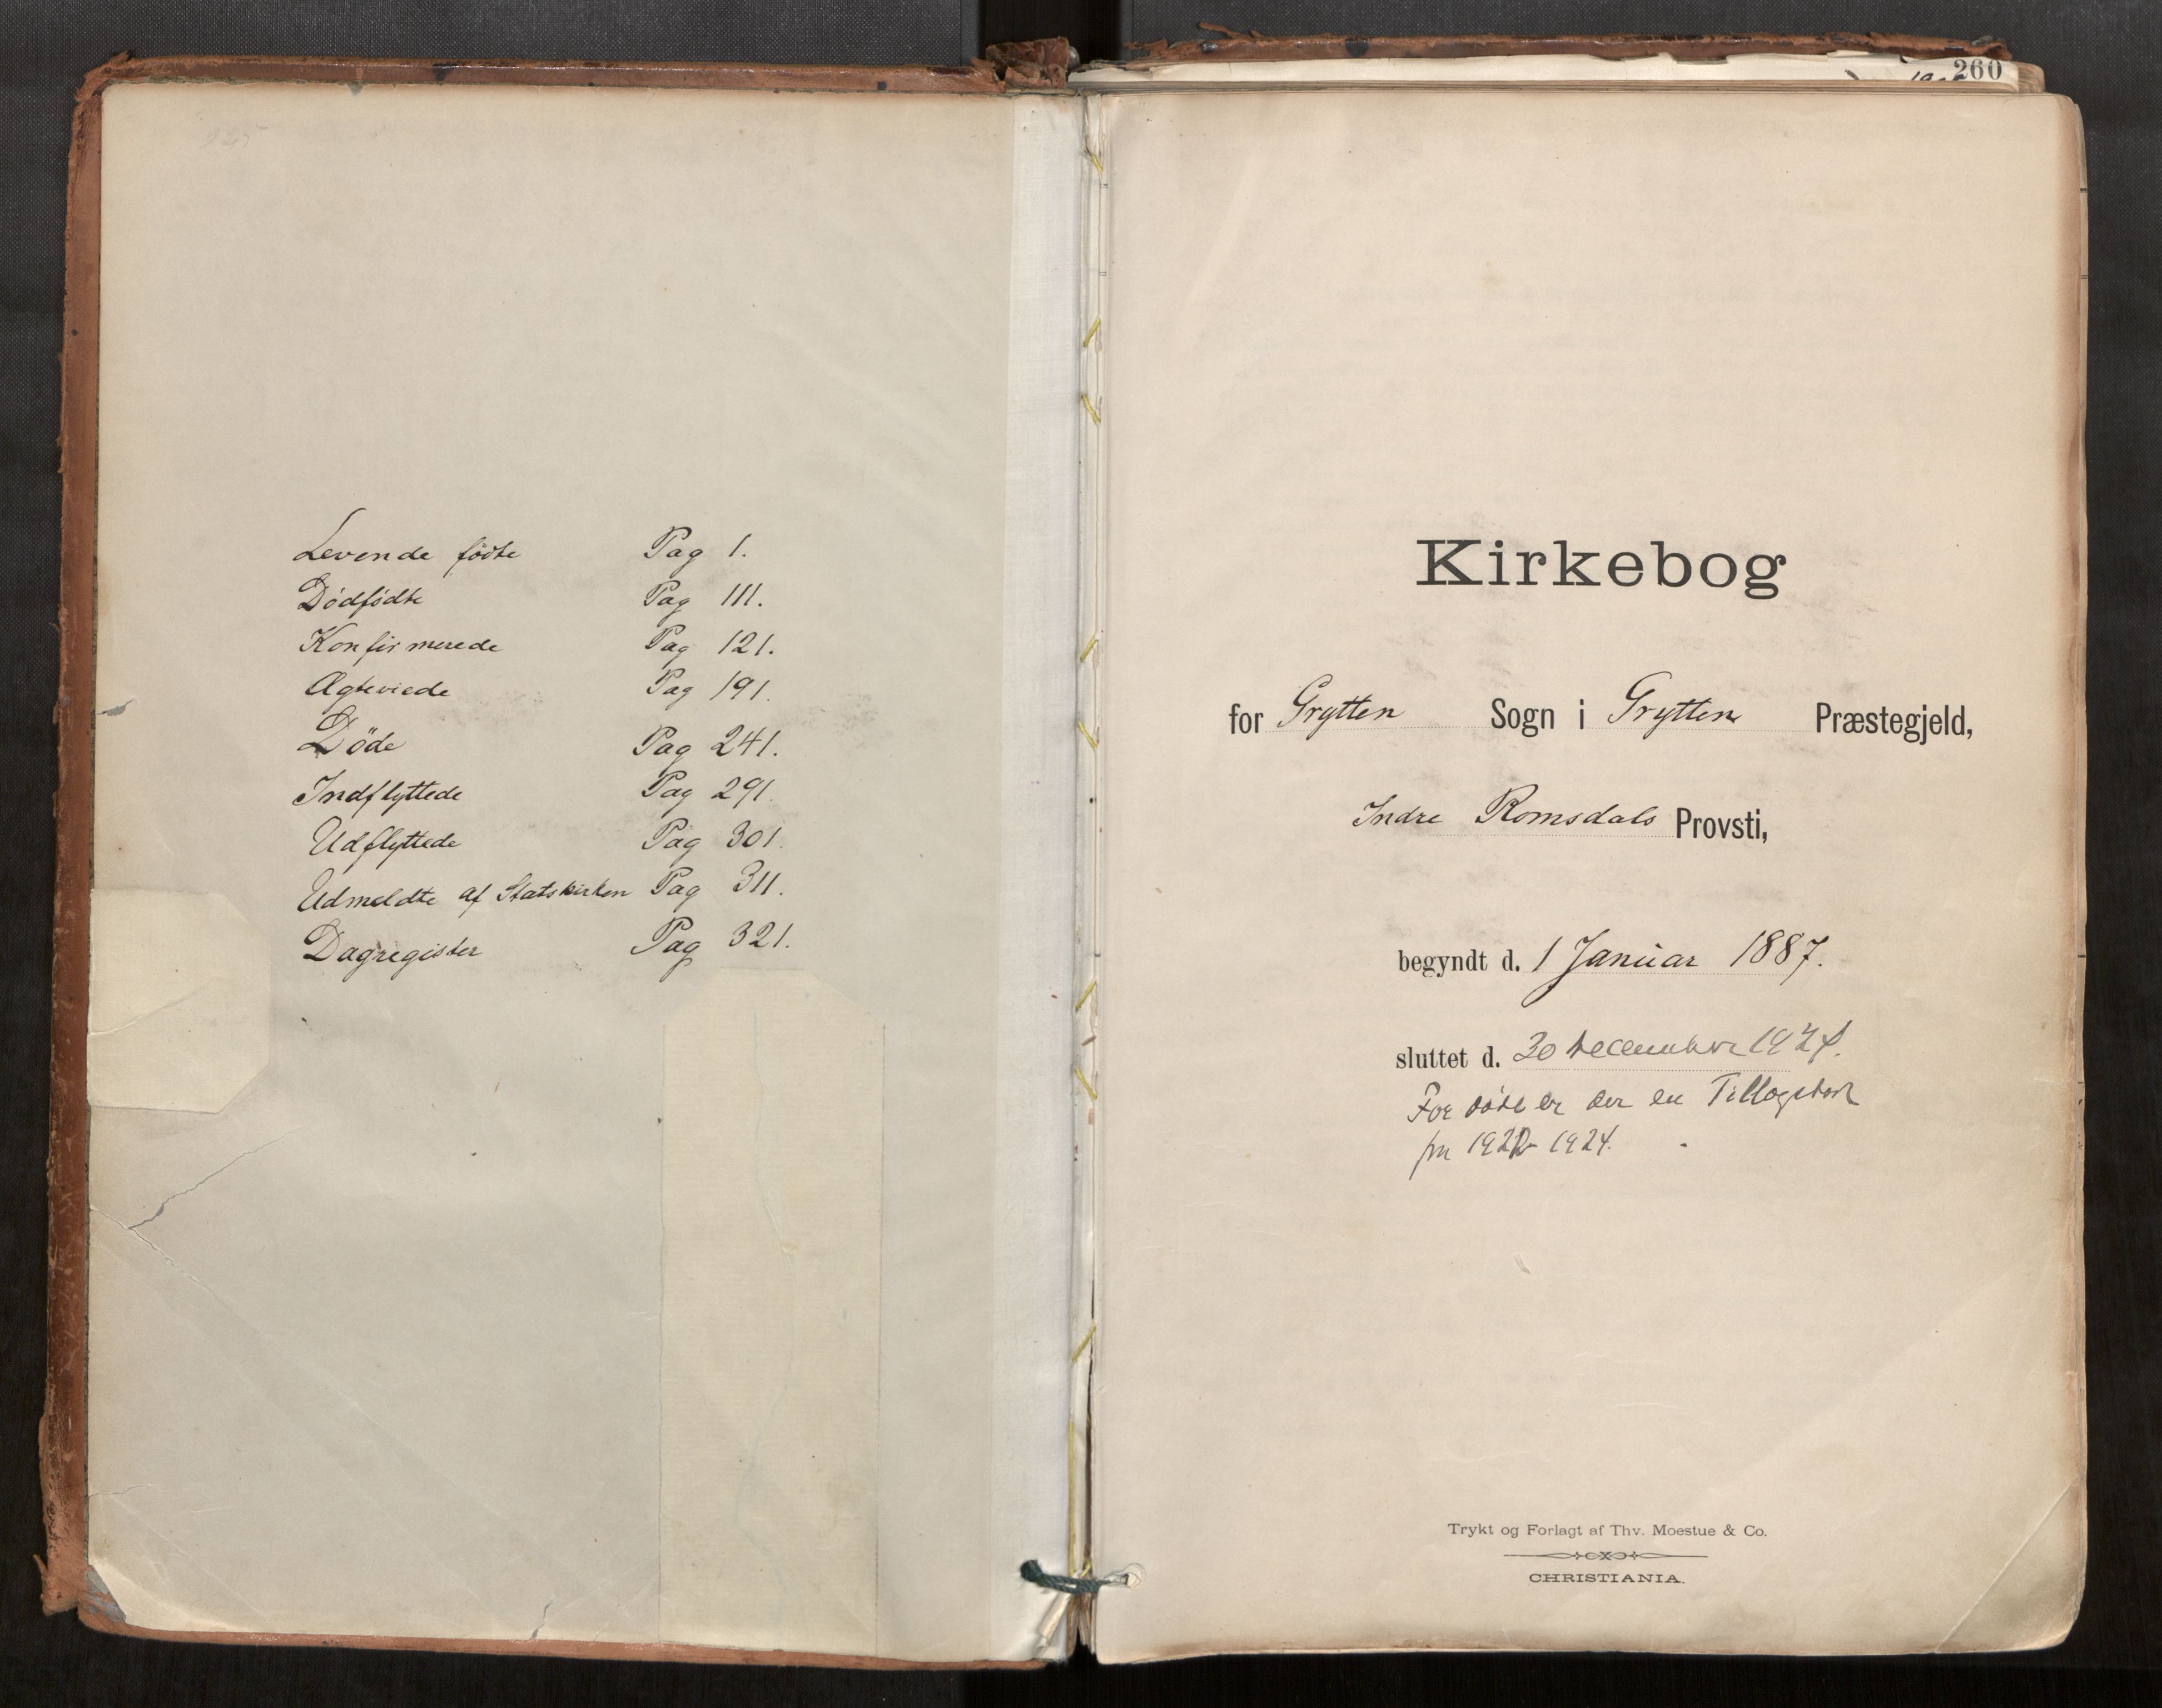 Levende fødte Pag 1.
Dødfødte Pag 111.
Konfirmerede Pag 121.
Ægteviede Pag 191.
Døde Pag 241.
Indflyttede Pag 291.
Udflyttede Pag 301.
Udmeldte af Statskirken Pag 311.
Dagregister Pag 321.
260
Kirkebog
for Grytten Sogn i Grytten Præstegjeld,
Indre Romsdals Provsti,
begyndt d. 1 Januar 1887.
sluttet d. 30 December 1924.
For døde er der en Tillægsbok
fra 1922-1924.
Trykt og Forlagt af Thv. Moestue & Co.
CHRISTIANIA.